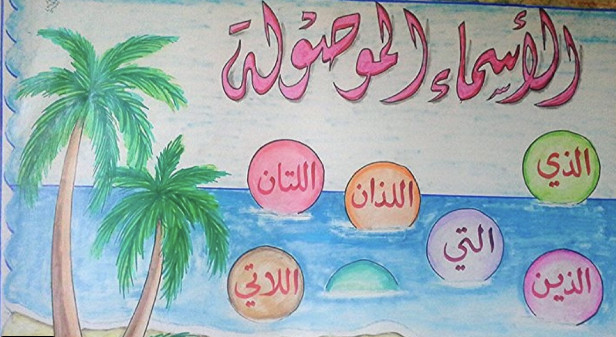 الأسماء الموصولة
الذي
اللذان
اللتان
التي
الذين
اللاتي